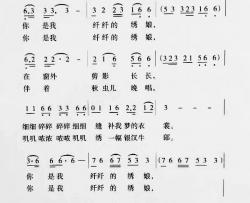 6.3 3 3. 3 — 3 2 2 3 1 6 6 (5 3 2 3 1 6 6)
你是我 纤纤的 绣娘，
你是我 纤纤的 绣娘，
6.2 2 2 — 5 3 2 1 6 5 — (3 3 2 3 2 1 6 5 5)
在窗外 剪影 长长，
伴着 秋虫儿 晚唱，
1 1 6 6 3 3 6 6 0 1 6 2.2 1 2 3 —
细细 碎碎 碎碎 细细 缝补我梦的衣 裳。
叽叽 哝哝 哝哝 叽叽 绣一幅银汉牛 郎。
6 6 6 — 7 6 6 7 5 3 3 — (7 6 6 7 5 3 3)
你是我 纤纤的 绣娘，
你是我 纤纤的 绣娘，